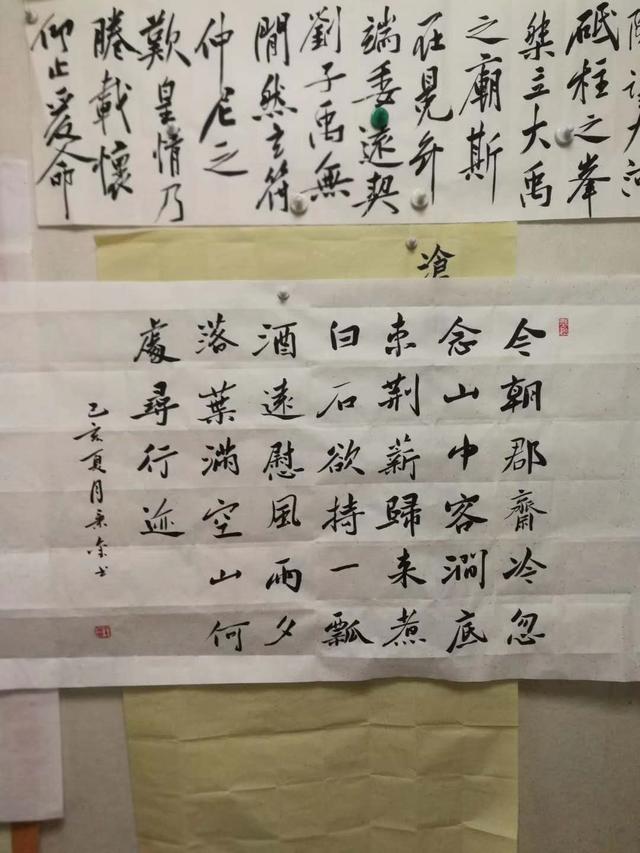 降望大河
砥柱之峯
桀立大禹
之廟斯
在冕弁
端委遠契
劉子禹無
間然玄符
仲尼之
歎皇情乃
睠載懷
仰止爰命
滄
今朝郡齋冷忽
念山中客澗底
束荆薪歸来煮
白石欲持一瓢
酒遠慰風雨夕
落葉滿空山何
處尋行迹
己亥夏月秉金书